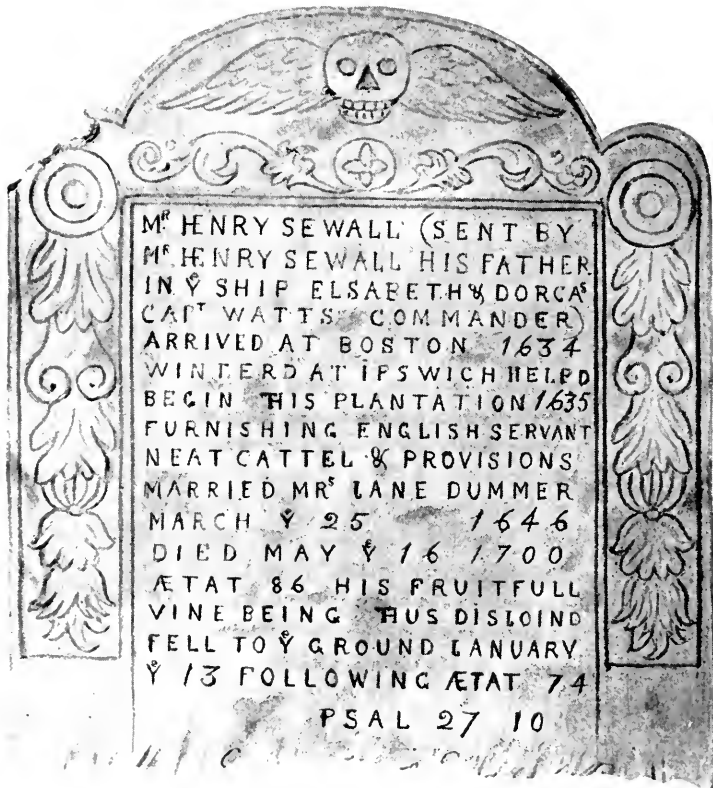 Mʀ HENRY SEWALL (SENT BY
Mʀ HENRY SEWALL HIS FATHER
IN Yᵉ SHIP ELSABETH & DORCAˢ
CAPᵀ WATTS COMMANDER)
ARRIVED AT BOSTON 1634
WINTERD AT IPSWICH HELPD
BEGIN THIS PLANTATION 1635
FURNISHING ENGLISH SERVANT
NEAT CATTEL & PROVISIONS
MARRIED MRˢ IANE DUMMER
MARCH Yᵉ 25 1646
DIED MAY Yᵉ 16 1700
ÆTAT 86 HIS FRUITFULL
VINE BEING THUS DISIOIND
FELL TO Yᵉ GROUND IANUARY
Yᵉ 13 FOLLOWING ÆTAT 74
PSAL 27 10